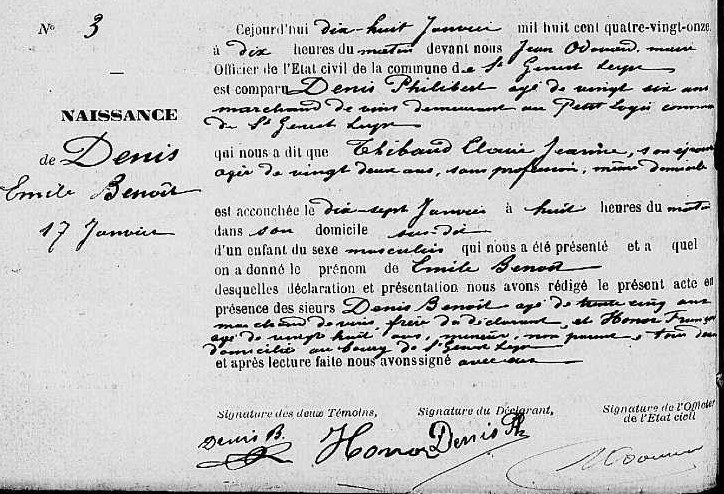 N° 3
NAISSANCE
de Denis
Emile Benoît
17 Janvier
Cejourd'hui dix-huit Janvier mil huit cent quatre-vingt-onze
à dix heures du matin devant nous Jean Odouard, maire
Officier de l'Etat civil de la commune de St Genest Lerpt
est comparu Denis Philibert agé de vingt six ans
marchand de vins demeurant au Petit Logis commune
de St Genest Lerpt
qui nous a dit que Thibaud Claire Jeanne, son épouse
agée de vingt deux ans, sans profession, même domicile
est accouchée le dix-sept Janvier à huit heures du matin
dans son domicile sus-dit
d'un enfant du sexe masculin qui nous a été présenté et a quel
on a donné le prénom de Emile Benoît
desquelles déclaration et présentation nous avons rédigé le présent acte en
présence des sieurs Denis Benoît agé de trente cinq ans
marchand de vins, frère du déclarant, et Honor François
agé de vingt huit ans, mineur, non parent, tous deux
domiciliés au bourg de St Genest Lerpt
et après lecture faite nous avons signé avec eux
Signature des deux Témoins, Signature du Déclarant, Signature de l'Officier
de l'Etat civil
Denis B. Honor Denis Ph